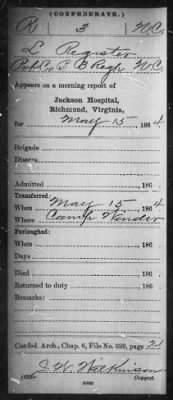 (CONFEDERATE.)
R 3 N.C.
L Register
Pvt. Co. 3 Regt. N.C.
Appears on a morning report of
Jackson Hospital,
Richmond, Virginia,
for May 15, 1864
Brigade
Disease
Admitted , 186
Transferred:
When May 15, 1864
Where Camp Winder
Furloughed:
When , 186
Days
Died , 186
Returned to duty , 186
Remarks:
Confed. Arch., Chap. 6, File No. 699, page 21
Copyist.